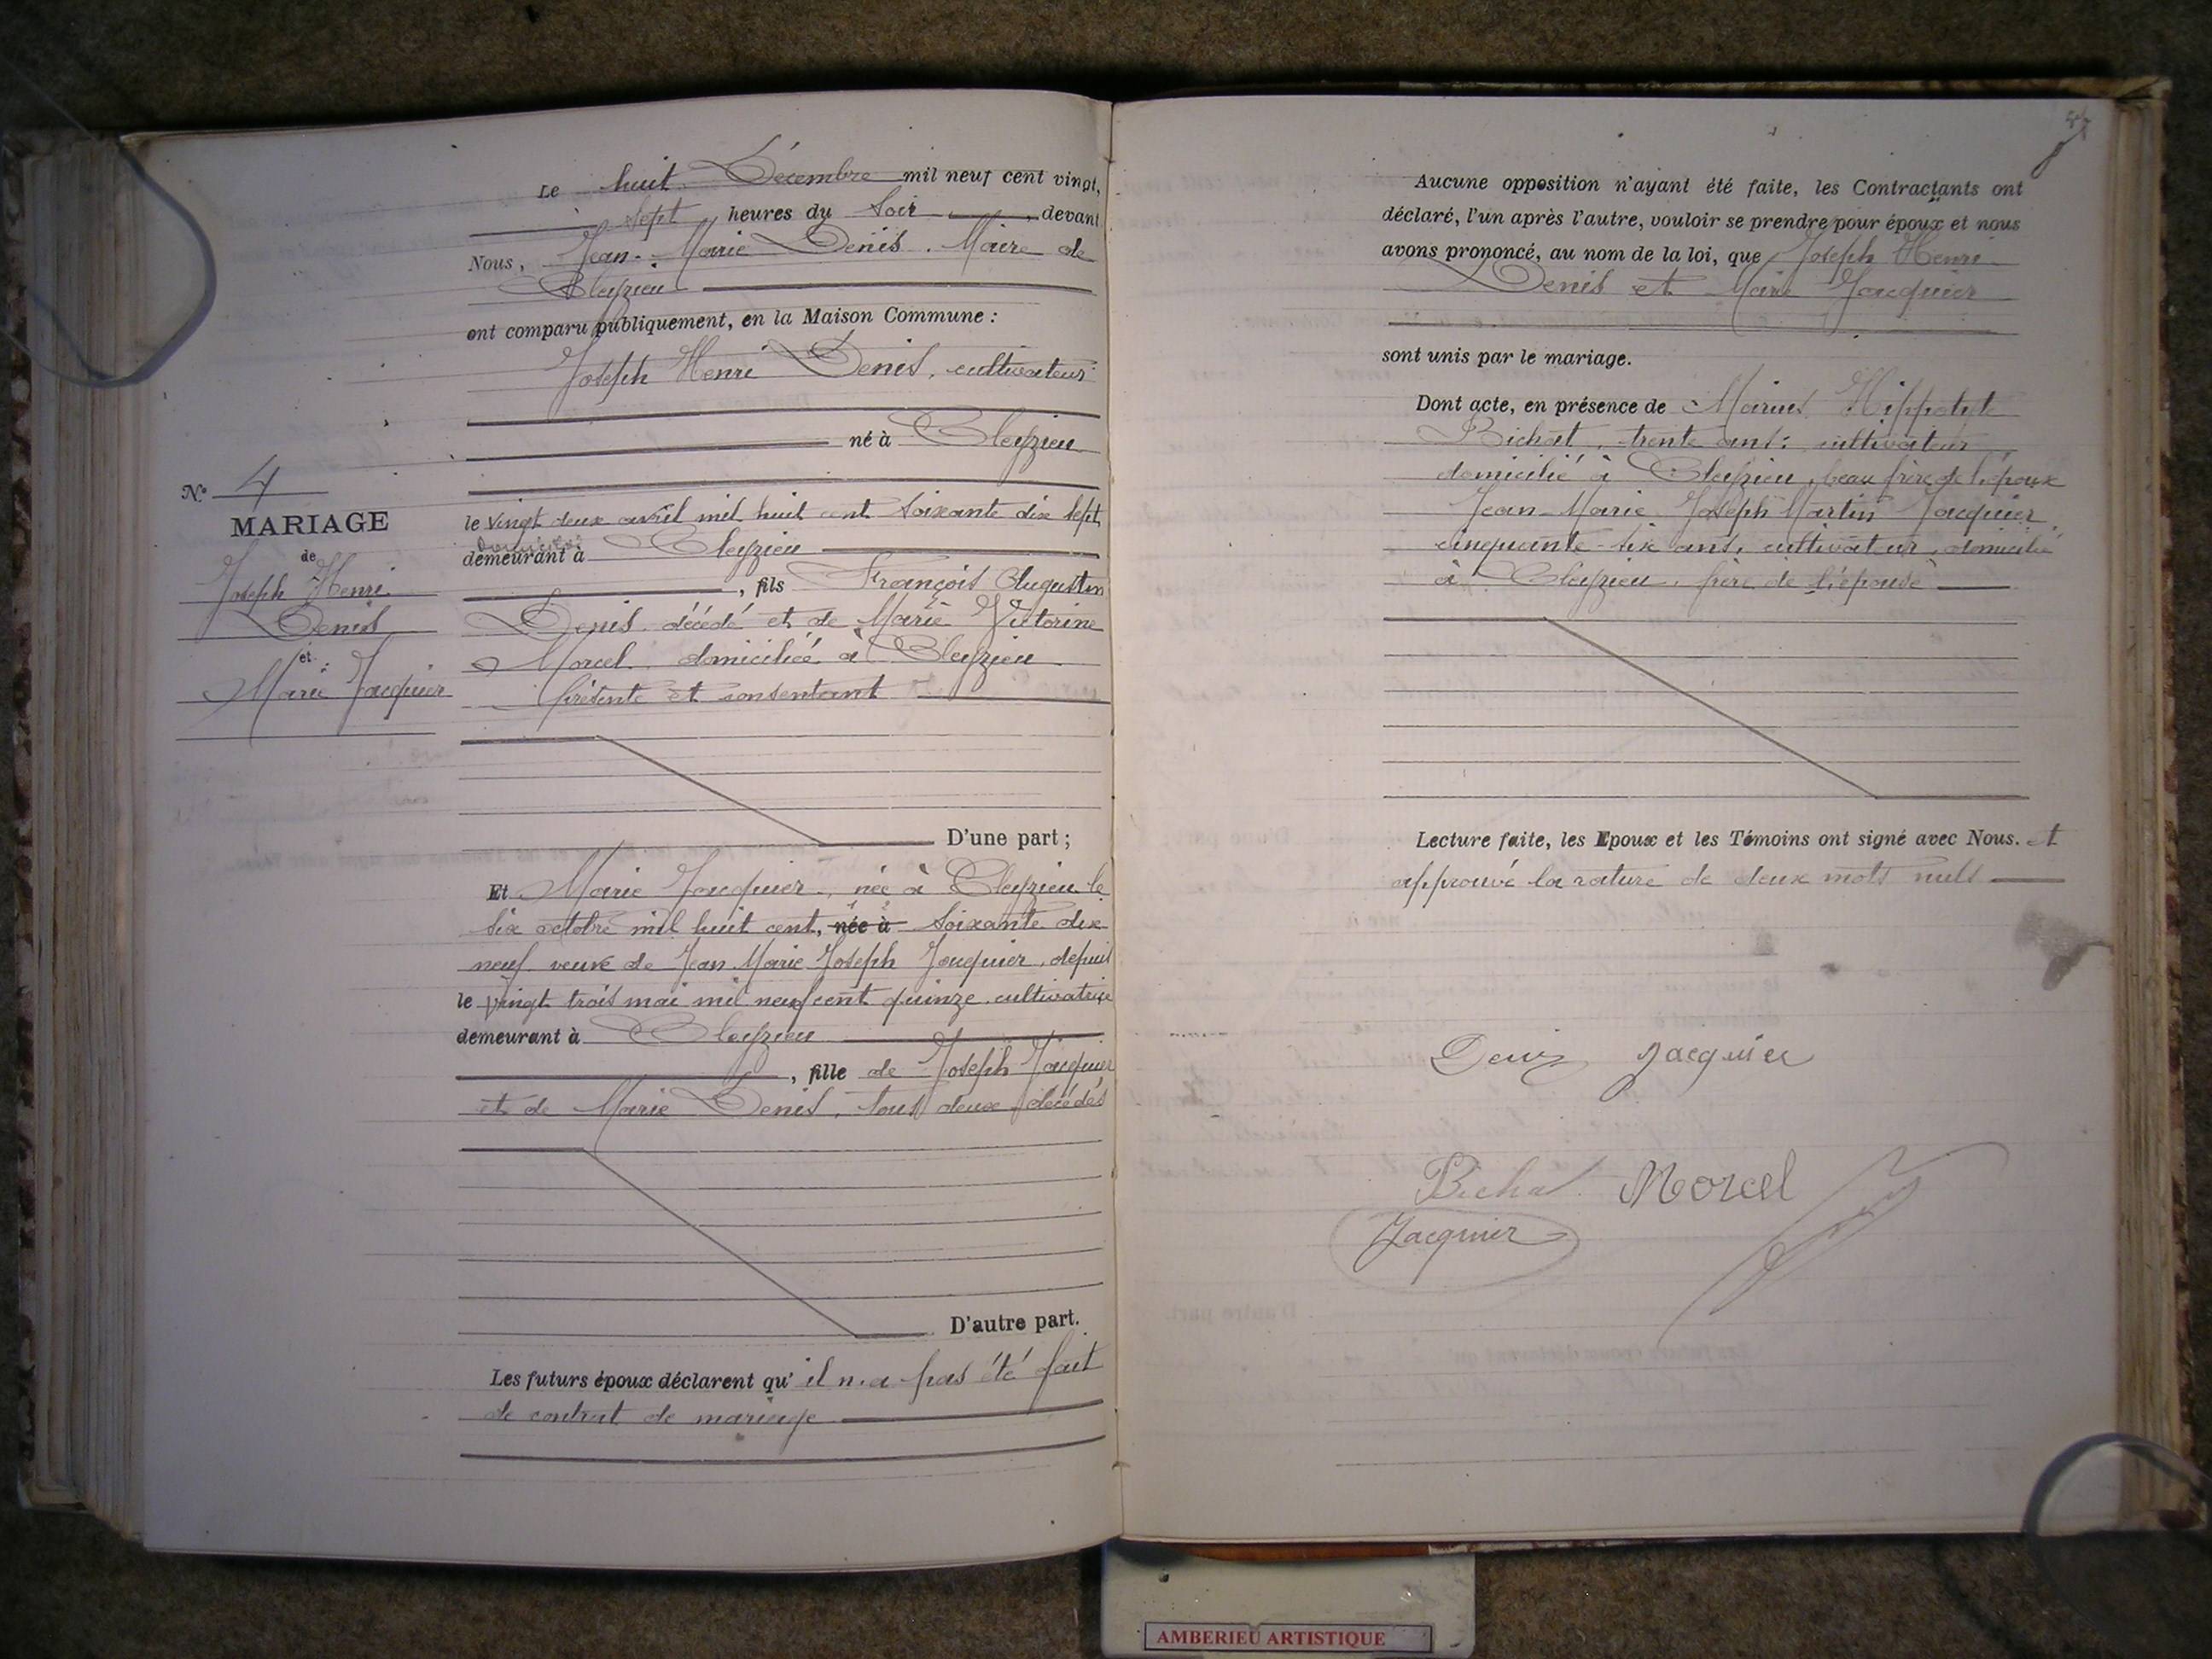 Le huit Décembre mil neuf cent vingt,
sept heures du Soir, devant
Nous, Jean-Marie Denis. Maire de
Cleyzieu
ont comparu publiquement, en la Maison Commune :
Joseph Henri Denis, cultivateur
né à Cleyzieu
le vingt deux avril mil huit cent soixante dix sept
domicilié
demeurant à Cleyzieu
, fils François Augustin
Denis, décédé et de Marie Victorine
Morcel domiciliée à Cleyzieu
présente et consentant
D'une part ;
N° 4
MARIAGE
de
Joseph Henri
Denis
et
Marie Jacquier
Et Marie Jacquier, née à Cleyzieu le
six octobre mil huit cent, née à soixante dix
neuf veuve de Jean Marie Joseph Jacquier, depuis
le vingt trois mai mil neuf cent quinze cultivatrice
demeurant à Cleyzieu
, fille de Joseph Jacquier
et de Marie Denis, tous deux décédés
D'autre part.
Les futurs époux déclarent qu'il n'a pas été fait
de contrat de mariage
Aucune opposition n'ayant été faite, les Contractants ont
déclaré, l'un après l'autre, vouloir se prendre pour époux et nous
avons prononcé, au nom de la loi, que Joseph Henri
Denis et Marie Jacquier
sont unis par le mariage.
Dont acte, en présence de Marius Hippolyte
Bichat, trente ans, cultivateur
domicilié à Cleyzieu, beau frère de l'époux
Jean-Marie Joseph Martin Jacquier,
cinquante-six ans, cultivateur, domicilié
à Cleyzieu, frère de l'épouse
Lecture faite, les Epoux et les Témoins ont signé avec Nous. et
approuvé la rature de deux mots nuls
Denis Jacquier
Bichat Morcel
Jacquier
AMBERIEU ARTISTIQUE